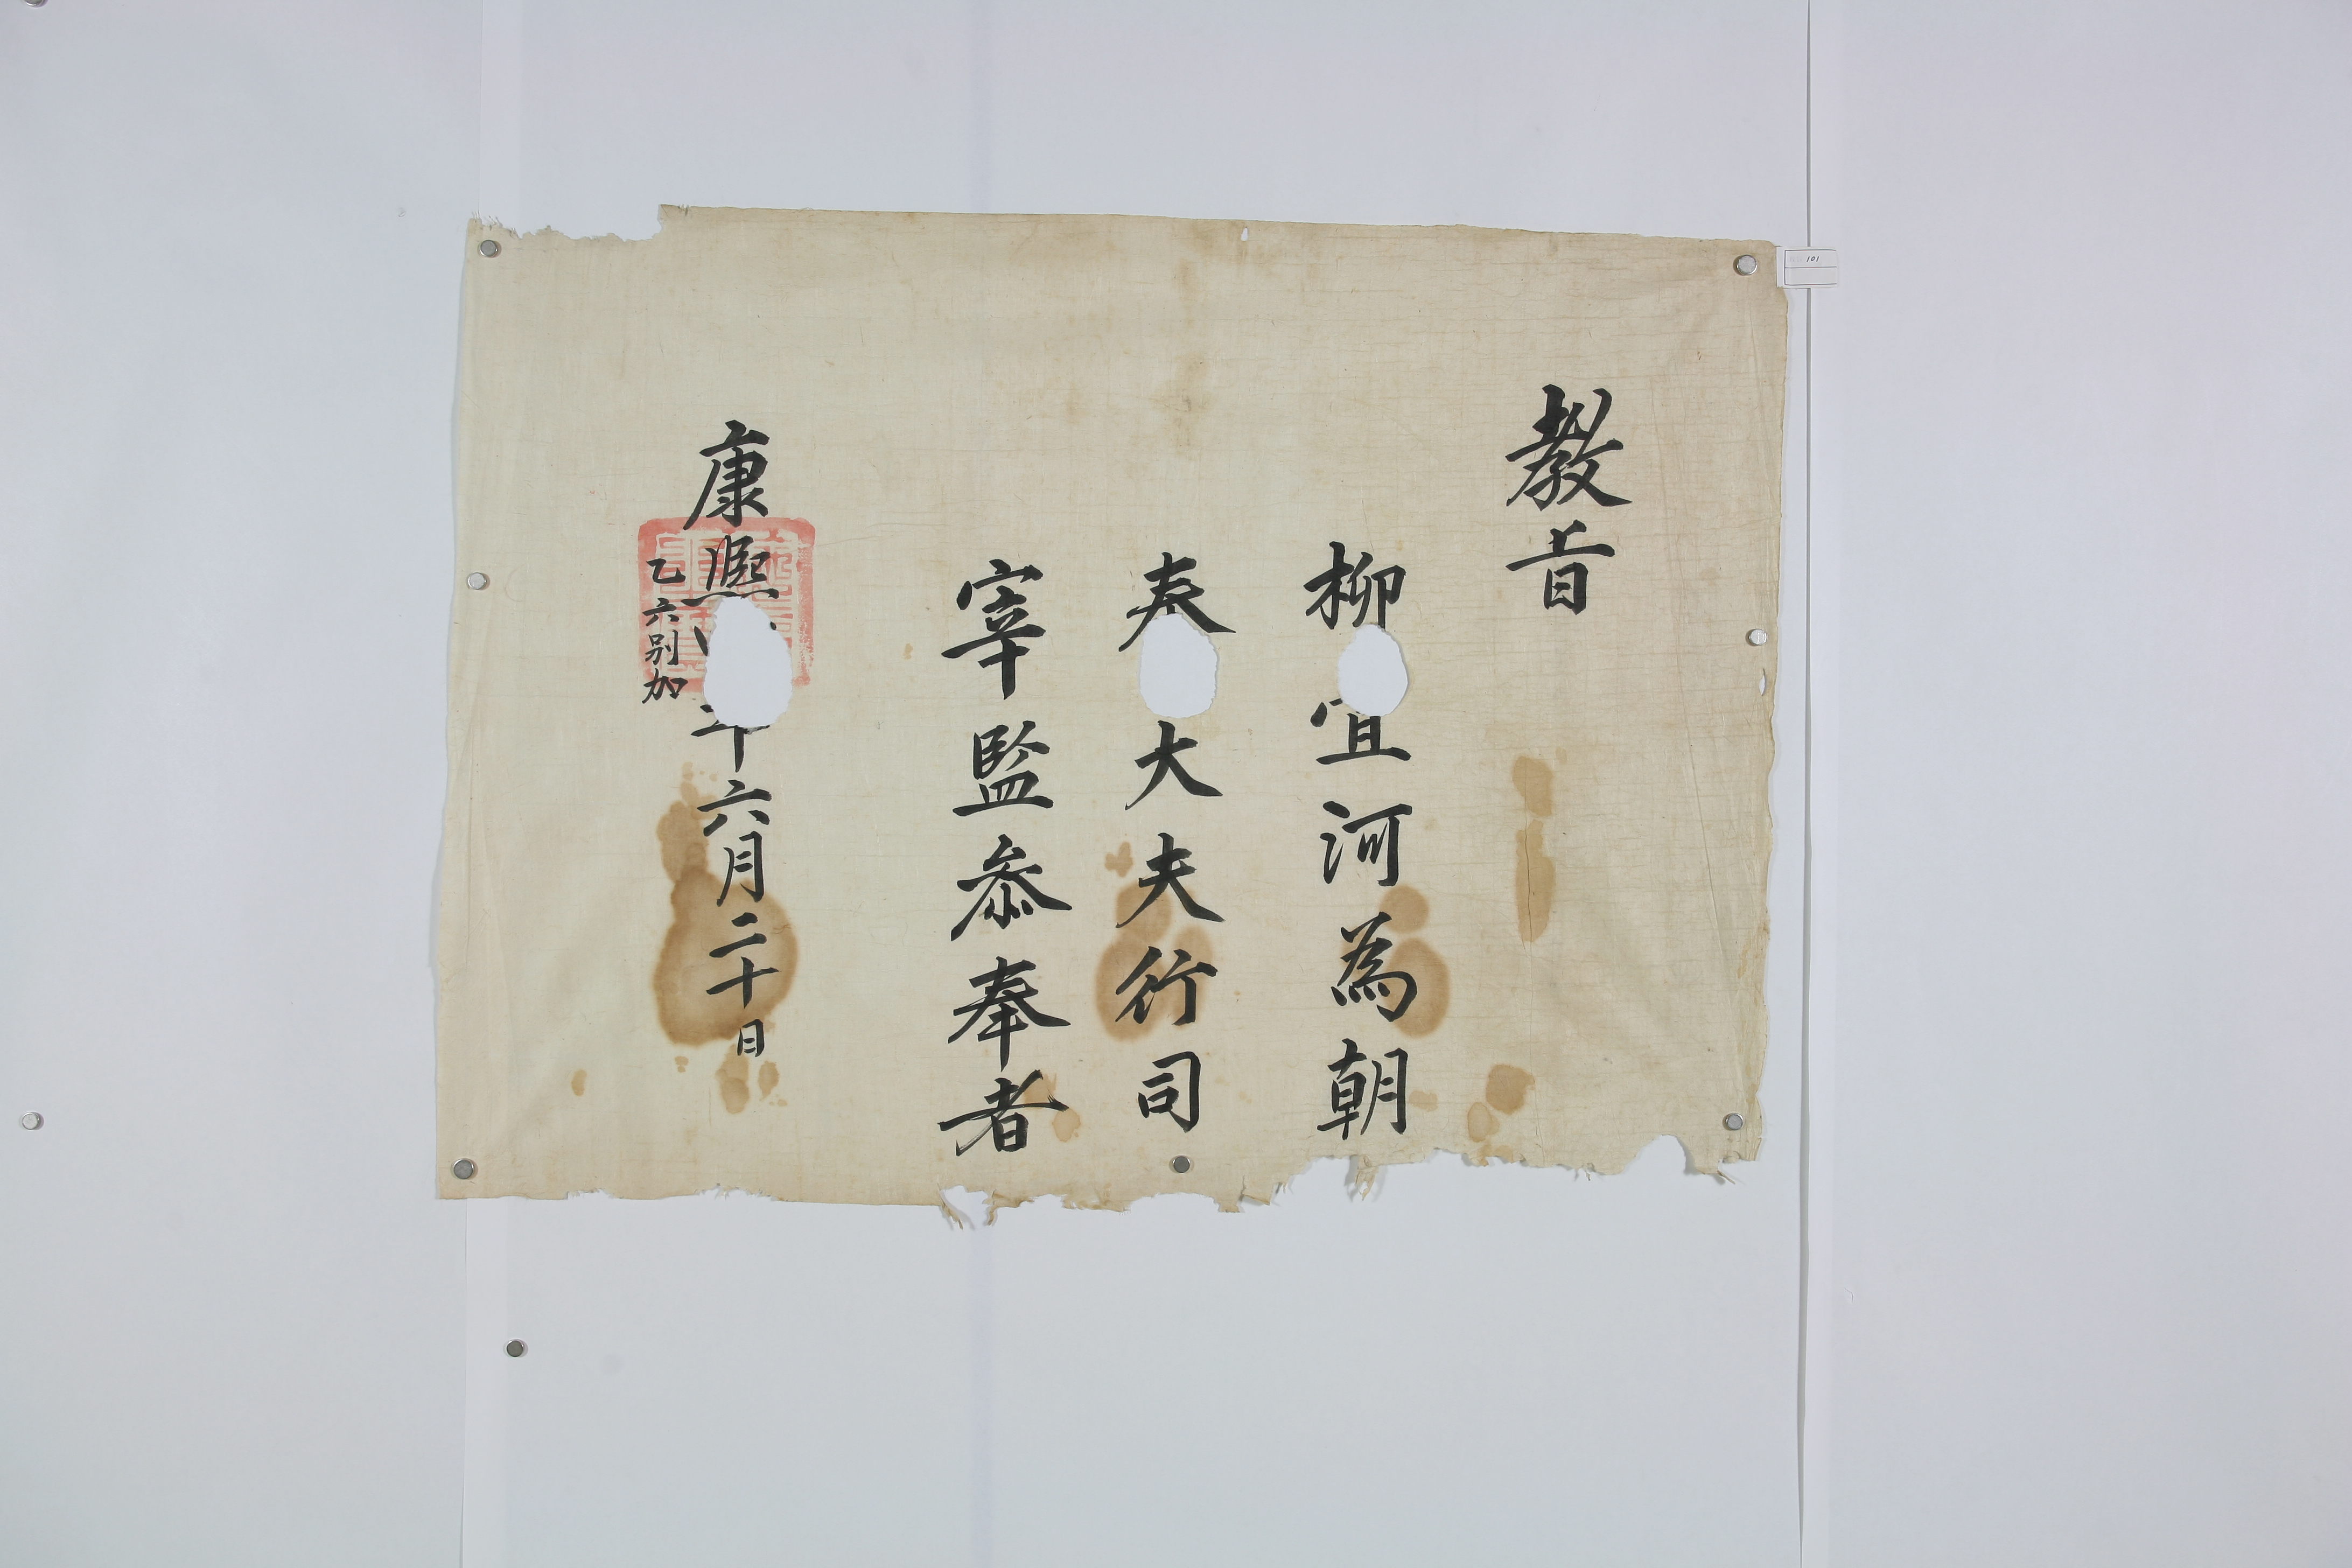 教旨
柳宜河為朝
奉大夫行司
宰監叅奉者
康熈年六月二十日
乙六別加
101